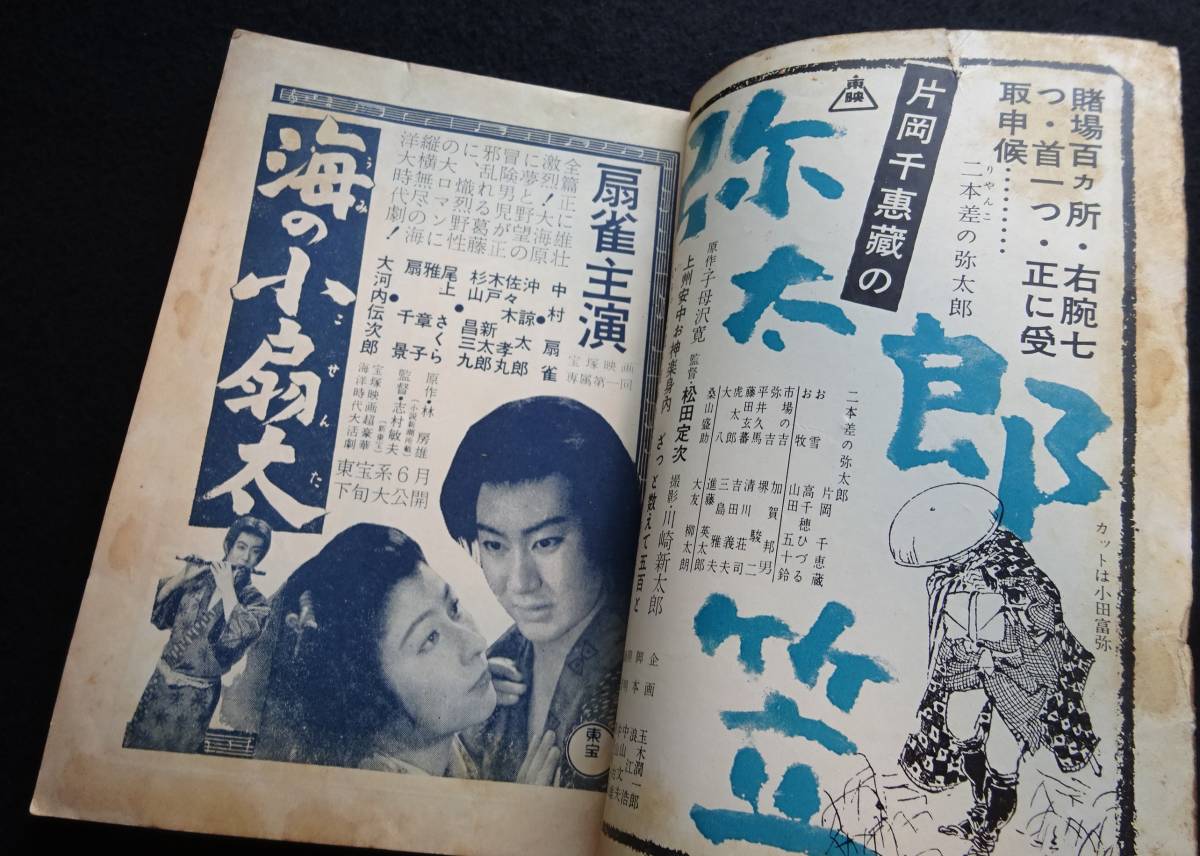 賭場百ヵ所・右腕七
つ・首一つ・正に受
取申候…………
りやんこ
二本差の弥太郎
東映
片岡千恵藏の
弥太郎笠
カットは小田富弥
原作 子母沢寛
監督・松田定次
撮影・川崎新太郎
上州安中お神楽身内
ざっと数えて五百と
二本差の弥太郎 片岡千恵蔵
お雪 高千穂ひづる
お牧 山田五十鈴
市場の吉
弥吉 加賀邦男
平井久馬 堺駿二
藤田玄蕃 清川荘司
虎太郎 吉田義夫
大八 三島雅夫
桑山盛助 進藤英太郎
大友柳太朗
企画 玉木潤一郎
脚本
扇雀主演
宝塚映画
専属第一回
全篇正に雄壮
激烈!大海原
に夢と野望の
冒険男児が正
邪乱れる葛藤
に、熾烈野性
の大ロマンに
縦横無尽の海
洋大時代劇!
中村扇雀
沖諒太郎
佐々木孝丸
木戸新太郎
杉山昌三九
尾上さくら
雅章子
扇千景
大河内伝次郎
原作・林房雄
監督・志村敏夫
宝塚映画超豪華
海洋時代大活劇
東宝系6月
下旬大公開
海の小扇太
うみ
こせんた
東宝